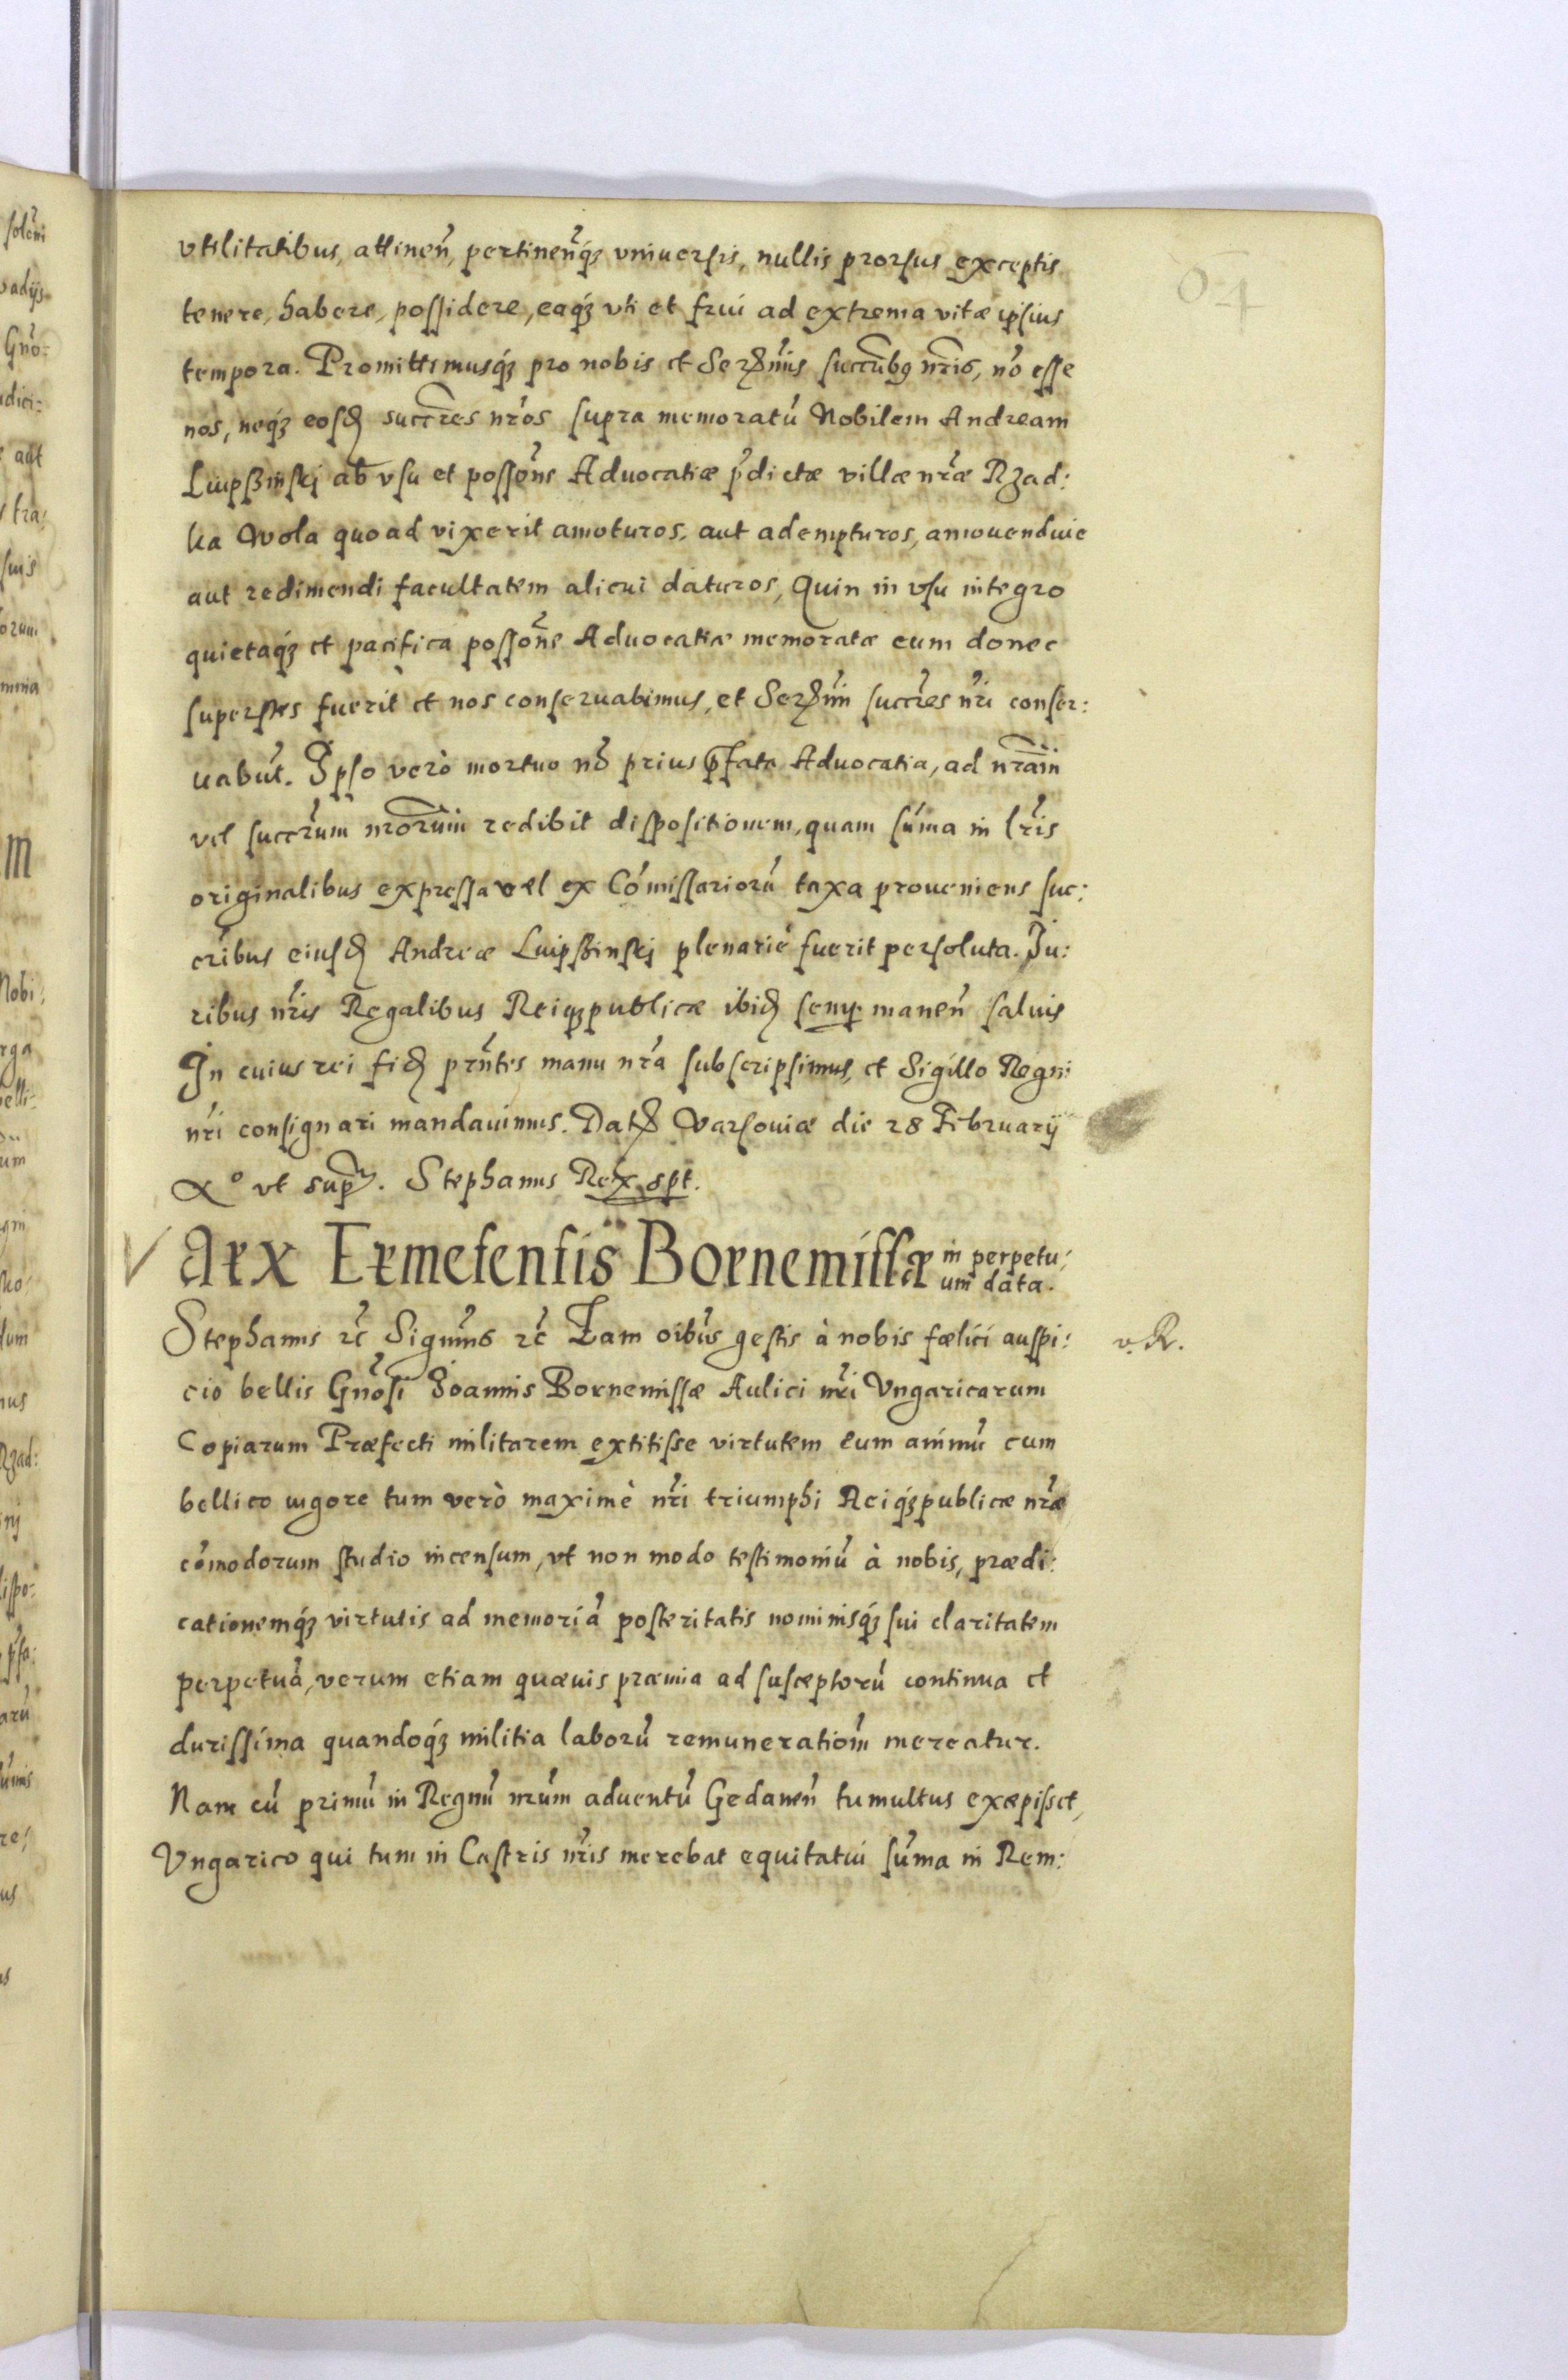 vtilitatibus, attinen̄, pertinen̄q́ꝫ vniuersis, nullis prorsus exceptis
tenere, habere, possidere, eaq́ꝫ vti et frui ad extrema vitæ ipsius
tempora. Promittimusq́ꝫ pro nobis et Serx̄mis succrūbꝯ nr̄is, nō esse
nos, neq́ꝫ eosd succr̄es nr̄os supra memoratū Nobilem Andream
Luipßinskj ab vsu et possōne Advocatiæ p̄dictæ villæ nr̄æ Rzad:
ka Wola quoad vixerit amoturos, aut adempturos, amouenduie
aut redimendi facultatem alicui daturos, Quin in vsu integro
quietaq́ꝫ et pacifica possōne Advocatiæ memoratæ eum donec
superstes fuerit et nos conseruabimus, et Serx̄mi succr̄es nr̄i conser:
uabūt. Ipso verò mortuo nō prius p̄fata Advocatia, ad nr̄am
vel succr̄um nr̄orum redibit dispositionem, quam sūma in lr̄is
originalibus expressa vel ex Cōmissariorū taxa proueniens suc:
cr̄ibus eiusd Andreæ Luipßinskj plenariè fuerit persoluta. Iu:
ribus nr̄is Regalibus Reiqꝫpublicæ ibid semp manen̄ saluis
In cuius rei fid prn̄tes manu nr̄a subscripsimus, et Sigillo Regni
nr̄i consignari mandauimus. Datx Varsouiæ die 28 Februarij
Ao vt supra. Stephanus Rex spt.
Arx Ermesensis Bornemissæ in perpetu:
um data.
Stephanus rc̄ Signūs rc̄ Tam oībus gestis à nobis fœlici auspi:
v. R.
cio bellis Gn̄osi Ioannis Bornemissæ Aulici nr̄i Vngaricarum
Copiarum Præfecti militarem extitisse virtutem eum animū cum
bellico uigore tum verò maximè nr̄i triumphi Reiq́ꝫpublicæ nr̄æ
cōmodorum studio incensum, vt non modo testimoniū à nobis, prædi:
cationemq́ꝫ virtutis ad memoriā posteritatis nominisq́ꝫ sui claritatem
perpetuā, verum etiam quæuis præmia ad susceptorū continua et
durissima quandoq́ꝫ militia laborū remunerationē mereatur.
Nam cū primū in Regnū nr̄um aduentū Gedanen̄ tumultus exæpisset,
Vngarico qui tum in Castris nr̄is merebat equitatui sūma in Rem: